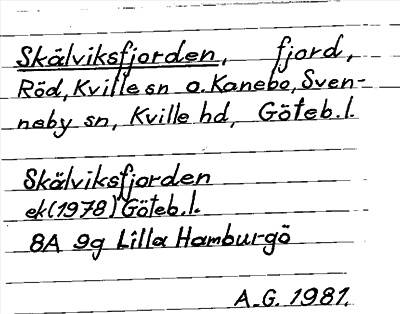 Skälviksfjorden, fjord,
Röd, Kville sn o. Kanebo, Sven-
neby sn, Kville hd, Göteb.l.
Skälviksfjorden
ek(1978) Göteb.l.
8A 9g Lilla Hamburgö
A.G. 1981.